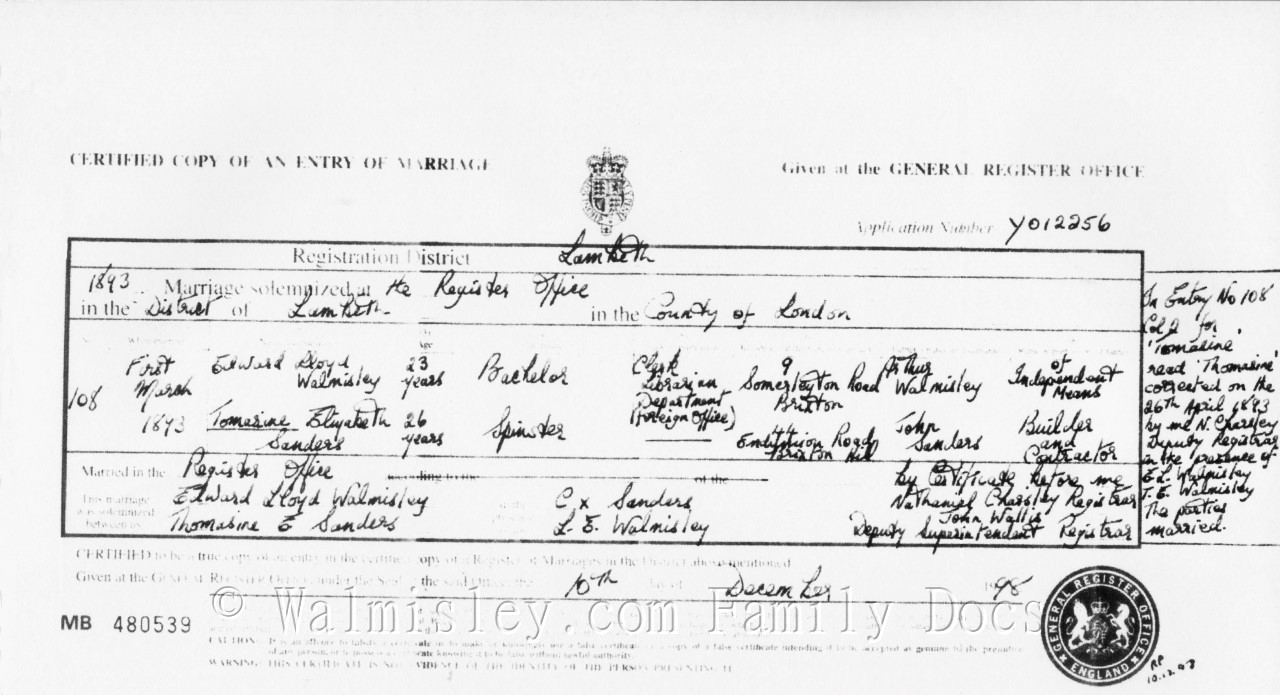 CERTIFIED COPY OF AN ENTRY OF MARRIAGE
Given at the GENERAL REGISTER OFFICE
Application Number Y012256
Registration District Lambeth
1893 Marriage solemnized at the Register Office
in the District of Lambeth in the County of London
Age
108
First March 1893
Edward Lloyd Walmisley
23 years
Bachelor
Clerk Librarian Department (Foreign Office)
9 Somerleyton Road Brixton
Arthur Walmisley
of Independent Means
Tomasine Elizabeth Sanders
26 years
Spinster
44 Road Brixton Hill
John Sanders
Builder and Contractor
Married in the Register Office according to the of the by Certificate before me
This marriage was solemnized between us
Edward Lloyd Walmisley
Thomasine E Sanders
C x Sanders
L. E. Walmisley
Nathaniel Charsley Registrar
John Wallis
Deputy Superintendent Registrar
In Entry No 108
Col 2 for
'Tomasine'
read 'Thomasine'
corrected on the
26th April 1893
by me N. Charsley
Deputy Registrar
in the presence of
E.L. Walmisley
T. E. Walmisley
The parties
married.
CERTIFIED to be a true copy of an entry in the certified copy of a Register of Marriages in the District above mentioned
Given at the GENERAL REGISTER OFFICE under the Seal of the said Office, the 10th day of December 1998
© Walmisley.com Family Docs
MB 480539
CAUTION: It is an offence to falsify a certificate or to make or knowingly use a false certificate or a copy of a false certificate intending it to be accepted as genuine to the prejudice
of any person, or to possess a certificate knowing it to be false without lawful authority.
WARNING: THIS CERTIFICATE IS NOT EVIDENCE OF THE IDENTITY OF THE PERSON PRESENTING IT.
GENERAL REGISTER OFFICE
ENGLAND
RP
10.12.98